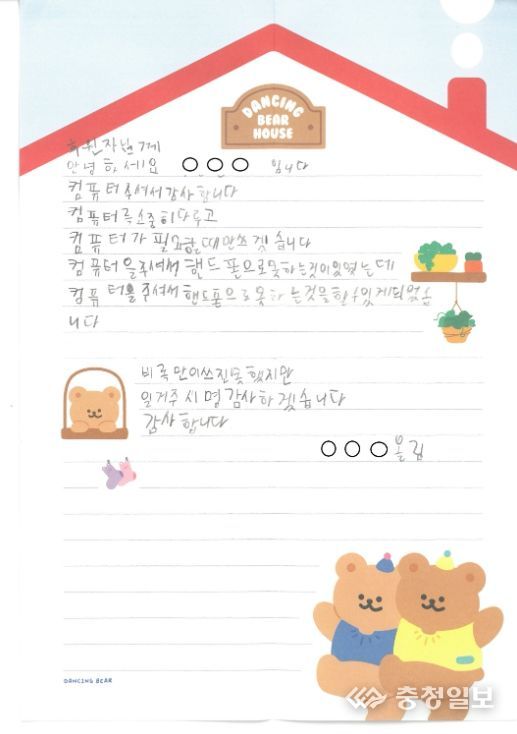 DANCING
BEAR
HOUSE
후원자님께
안녕하세요 ○○○ 입니다
컴퓨터 주셔서 감사합니다
컴퓨터를 소중히 다루고
컴퓨터가 필요할 때만 쓰겟습니다
컴퓨터을 주셔서 핸드폰으로 못하는것이있엇는데
컴퓨터를 주셔서 핸드폰으로 못하는것을 할수있게되었습
니다
비록 만이쓰진못했지만
일거주시명 감사하겟습니다
감사합니다
○○○ 올림
DANCING BEAR
충청일보